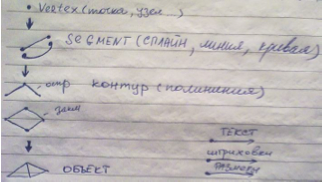 Vertex (точка, узел)
SEGMENT (СПЛАЙН, линия, кривая)
откр контур (полилиния)
замк
ТЕКСТ
штриховки
РАЗМЕРЫ
ОБЪЕКТ